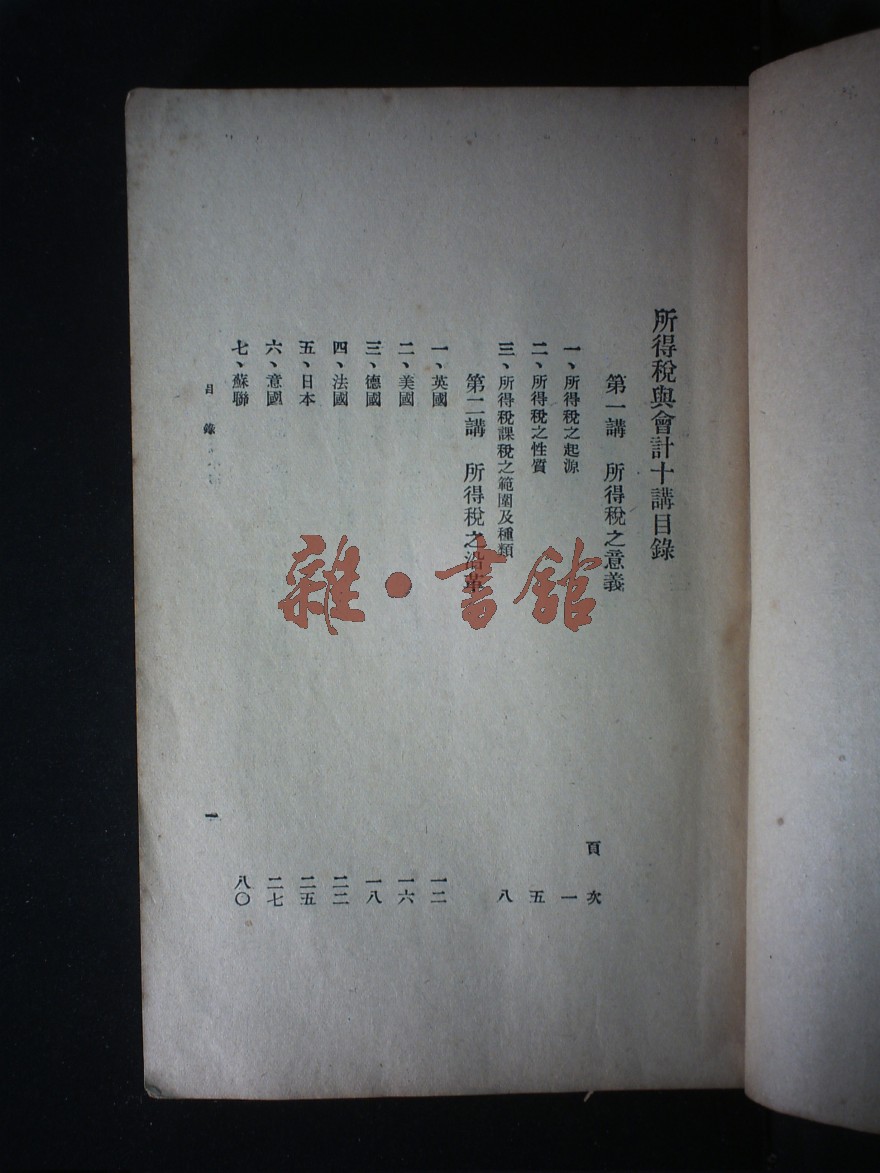 所得稅與會計十講目錄
第一講　所得稅之意義
頁次
一、所得稅之起源　一
二、所得稅之性質　五
三、所得稅課稅之範圍及種類　八
第二講　所得稅之沿革
一、英國　一二
二、美國　一六
三、德國　一八
四、法國　二二
五、日本　二五
六、意國　二七
七、蘇聯　八〇
目錄　一
雜·書館